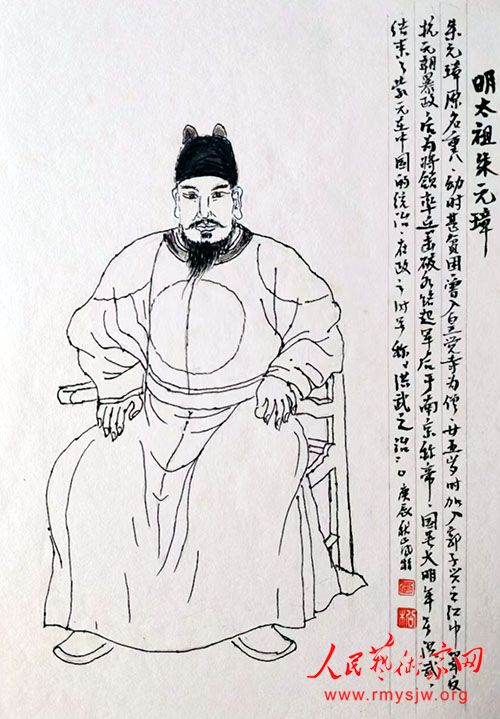 明太祖朱元璋
朱元璋原名重八、幼时甚贫困、曾入皇觉寺为僧、廿五岁时加入郭子兴之红巾军反
抗元朝暴政后为将领率兵击破各路起军后于南京称帝、国号大明年号洪武、
结束了蒙元在中国的统治、在政之时号称"洪武之治"庚辰秋
人民藝術家网
www.rmysjw.org